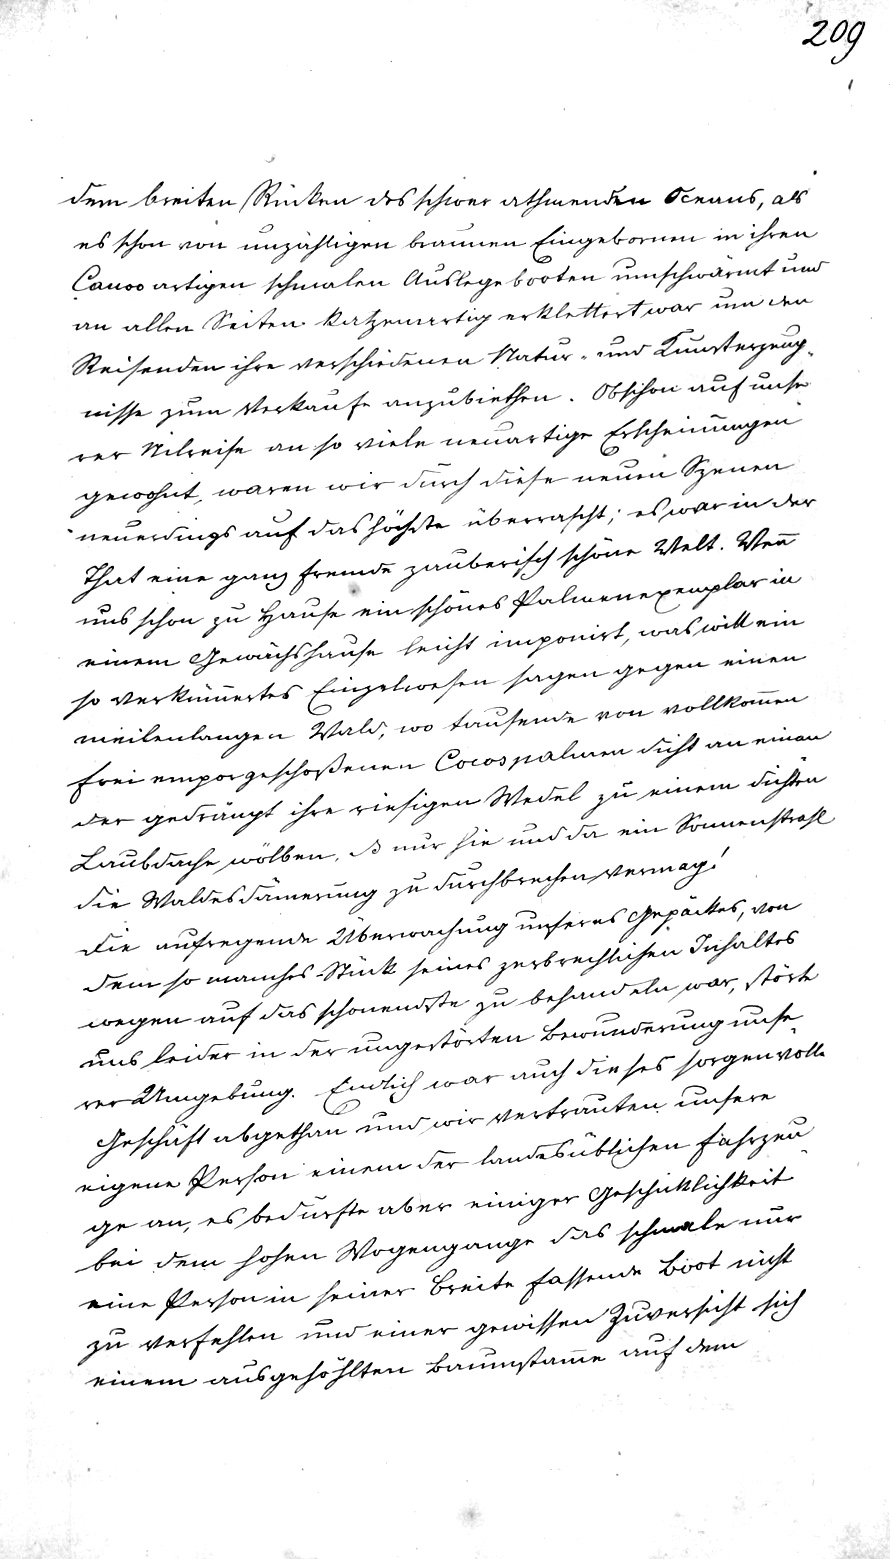 209
dem breiten Rücken des schwer athmenden Oceans, als
es schon von unzähligen braunen Eingebornen in ihren
Canoo artigen schmalen Auslegebooten umschwärmt und
an allen Seiten katzenartig erklettert war um den
Reisenden ihre verschiedenen Natur- und Kunsterzeug-
nisse zum Verkaufe anzubiethen. Obschon auf unse-
rer Nilreise an so viele neuartige Erscheinungen
gewohnt, waren wir durch diese neuen Szenen
neuerdings auf das höchste überrascht; es war in der
That eine ganz fremde zauberisch schöne Welt. Wen̄
uns schon zu Hause ein schönes Palmenexemplar in
einem Gewächshause leicht imponirt, was will ein
so verküm̄ertes Einzelwesen sagen gegen einen
meilenlangen Wald, wo tausende von vollkom̄en
frei emporgeschoßenen Cocospalmen dicht an einan
der gedrängt ihre riesigen Wedel zu einem dichten
Laubdache wölben, ds nur hie und da ein Sonnenstrahl
die Waldesdäm̄erung zu durchbrechen vermag!
Die aufregende Überwachung unseres Gepäckes, von
dem so manches Stück seines zerbrechlichen Inhaltes
wegen auf das schonendste zu behandeln war, störte
uns leider in der ungestörten Bewunderung unse-
rer Umgebung. Endlich war auch dieses sorgenvolle
Geschäft abgethan und wir vertrauten unsere
eigene Person einem der landesüblichen Fahrzeu-
ge an, es bedurfte aber einiger Geschicklichkeit
bei dem hohen Wogengange das schmale nur
eine Person in seiner Breite fassende Boot nicht
zu verfehlen und einer gewissen Zuversicht sich
einem ausgehöhlten Baumstam̄e auf dem